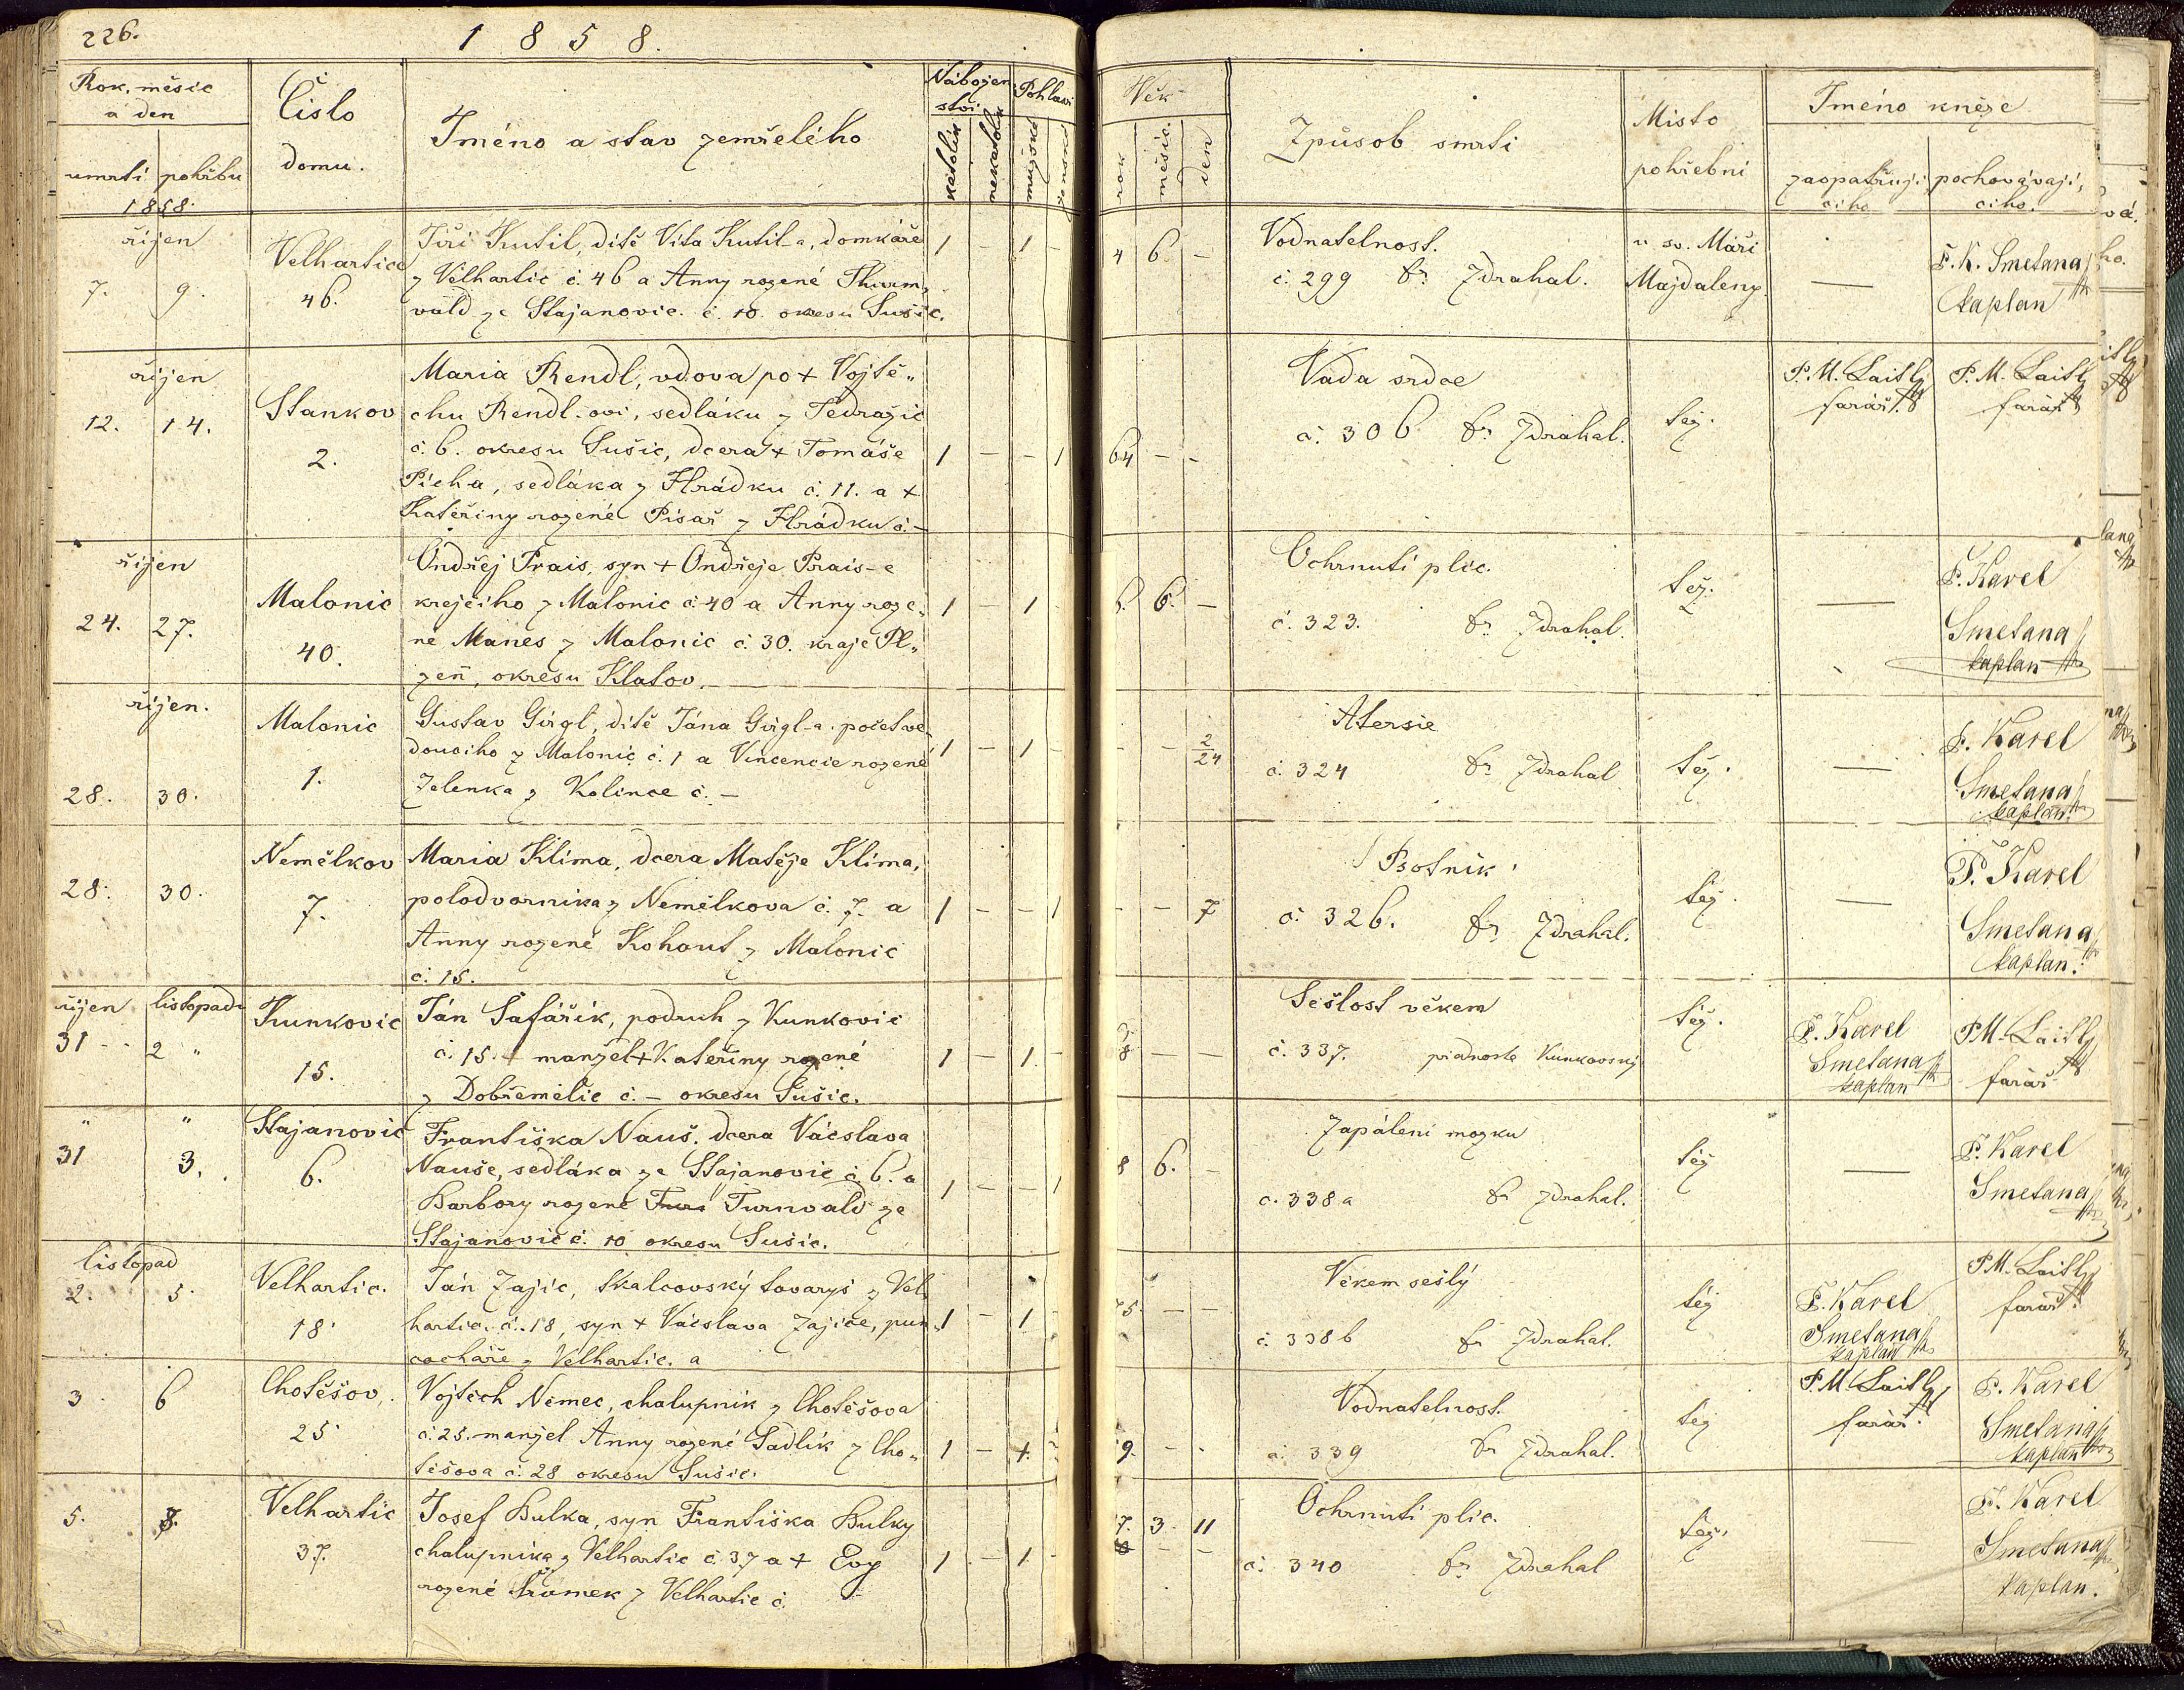 226.
1 8 5 8.
Rok, měsic
a den
umrti pohřbu
1858.
Čislo
domu.
Jméno a stav zemřelého
Nábožen
stvi
Pohlavi
katolik
nekatolik
mužské
ženské
Věk
rok
měsic.
den
Způsob smrti
Misto
pohřebni
Jméno kněze
zaopatřuji
ciho
pochovávaji,
ciho.
řijen
7. 9.
Velhartice
46.
Jiři Kutil, ditě Vita Kutil-a, domkáře
z Velhartic č. 46 a Anny rozené Thurm,
vald ze Stajanovic. č. 10. okresu Sušic.
1 - 1 -
4 6. -
Vodnatelnost.
č. 299 fr. Zdrahal.
u sv. Maři
Majdaleny.
—
P. K. Smetana
kaplan
řijen
12. 14.
Stankov
2.
Maria Rendl, vdova po + Vojtě„
chu Rendl-ovi, sedláku z Tedražic
č. 6. okresu Sušic, dcera + Tomáše
Picha, sedláka z Hrádku č. 11. a +
Kateřiny rozené Pisař z Hrádku č. -
1 - - 1
64 - -
Vada srdce
č. 306 fr. Zdrahal.
téz.
P. M. Laitl
farář.
P. M. Laitl
farář
řijen
24. 27.
Malonic
40.
Ondřej Prais, syn + Ondřeje Prais-e
krejčiho z Malonic č. 40 a Anny roze„
né Manes z Malonic č. 30. kraje Pl„
zeň, okresu Klatov.
1 - 1 -
6. 6. -
Ochrnuti plic.
č. 323. fr. Zdrahal.
téz.
—
P. Karel
Smetana
kaplan
řijen.
28. 30.
Malonic
1.
Gustav Girgl, ditě Jána Girgl-a, početve„
douciho z Malonic č. 1 a Vincencie rozené
Zelenka z Kolince č. -
1 - 1 -
- - 2/24
Atersie
č. 324 fr. Zdrahal
téz.
—
P. Karel
Smetana
kaplan.
28. 30.
Nemělkov
7.
Maria Klima, dcera Matěje Klima,
polodvornika z Nemělkova č. 7. a
Anny rozené Kohout z Malonic
č. 15.
1 - - 1
- - 7
Psotnik
č. 326. fr. Zdrahal.
téz.
—
P. Karel
Smetana
kaplan.
řijen listopadu
31 - 2 „
Kunkovic
15.
Ján Šafářik, podruh z Kunkovic
č. 15. manžel + Kateřiny rozené
z Dobřemělic č. - okresu Sušic.
1 - 1 -
8 - -
Sešlost věkem
č. 337. přednosta Kunkovský
téz.
P. Karel
Smetana
kaplan
P. M. Laitl
farář
„ „
31 3.
Stajanovic
6.
Františka Nauš. dcera Vácslava
Nauše, sedláka ze Stajanovic č. 6. a
Barbory rozené Turnvald ze
Stajanovic č. 10 okresu Sušic.
1 - - 1
8 6. -
Zapáleni mozku
č. 338 a fr Zdrahal.
téz
—
P. Karel
Smetana
listopad
2. 5.
Velhartic.
18.
Ján Zajic, Skalcovský tovaryš z Vel
hartic. č. 18, syn + Vácslava Zajice, pun„
cocháře z Velhartic. a
1 - 1 -
75. - -
Věkem sešlý
č. 338 b fr Zdrahal.
téz
P. Karel
Smetana
kaplan
P. M. Laitl
farář.
3 6
Chotěšov,
25
Vojtěch Němec, chalupnik z Chotěšova
č. 25. manžel Anny rozené Sadlik z Cho„
těšova č. 28 okresu Sušic.
1 - 1. -
9. - -
Vodnatelnost.
č. 339 fr Zdrahal.
téz
P. M. Laitl
farář.
P. Karel
Smetana
kaplan
5. 8.
Velhartic
37.
Josef Bulka, syn Františka Bulky
chalupnika z Velhartic č. 37 a + Evy
rozené Šrámek z Velhartic č.
1 - 1. -
7. 3. 11
Ochrnuti plic.
č. 340 fr. Zdrahal
téz.
—
P. Karel
Smetana
kaplan.